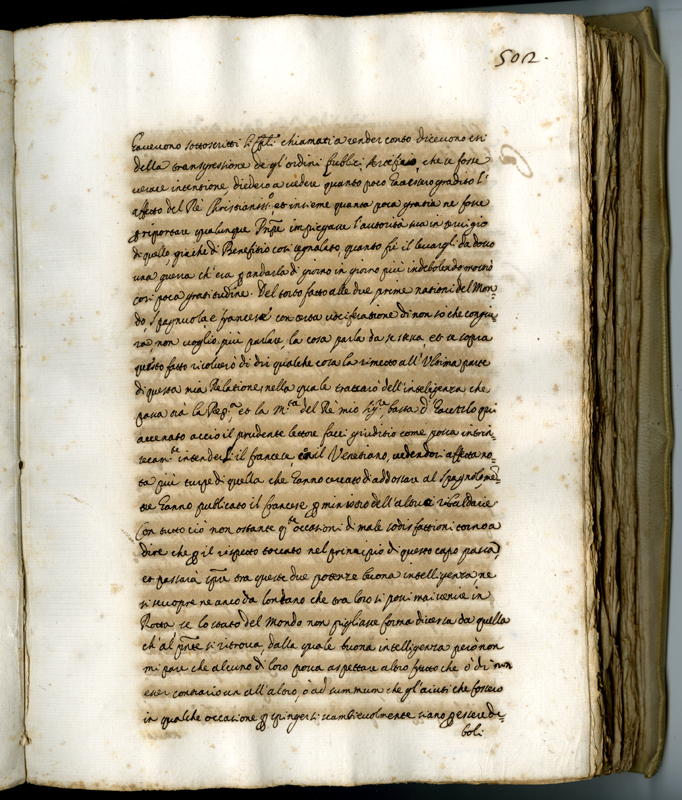 502.
havevono sottoscritti li Cap.li chiamati a render conto dicevono essi
della transgressione de gl'ordini publici, che se fosse
verace intentione, diedero a vedere quanto poco havessero gradito l'
affetto del Rè Christianiss.o et insieme quanta poca gratia ne fosse
riportare qualunque Pnpe impiegasse l'autorità sua in servigio
di quelle, giache di Benefitio così segnalato, quanto fù il levargli da dosso
una guerra ch'era andarla di giorno in giorno più indebolendo mostrò
così poca gratitudine. Del torto fatto alle due prime nationi del Mon-
do, Spagnuola e francese con certa di non so che congiu
ra, non voglio più parlare, la cosa parla da se stessa, et se sopra
questo fatto risolverò di dir qualche cosa la rimetto all'Ultima parte
di questa mia Relatione, nella quale trattarò dell'inteligenza che
passa trà la Rep.ca et la M.tà del Rè mio Sig.re, basta d'haverlo qui
accenato acciò il prudente lettore facci giuditio come possa intrin-
secam.te intendersi il francese con il Venetiano, vedendosi affetta no-
ta più turpe di quella che hanno cercato di addossare al Spagnolo, men-
tre hanno publicato il francese ministro dell'altrui ribalderie
Con tutto ciò non ostante q.te occasioni di male sodisfattioni torno a
dire che il rispetto toccato nel principio di questo capo passa,
et passarà sempre tra queste due potenze buona intelligenza ne
si scuopre ne anco da lontano che tra loro si possi mai venire in
Rotta se lo stato del Mondo non pigliasse forma diversa da quella
ch'al pnte si ritrova, dalla quale buona intelligenza però non
mi pare che alcuno di loro possa aspettare altro frutto che ò di non
esser contrario un all'altro, ò ad summum che gl'aiuti che fossero
in qualche occasione spingersi scambievolmente siano essere de-
boli